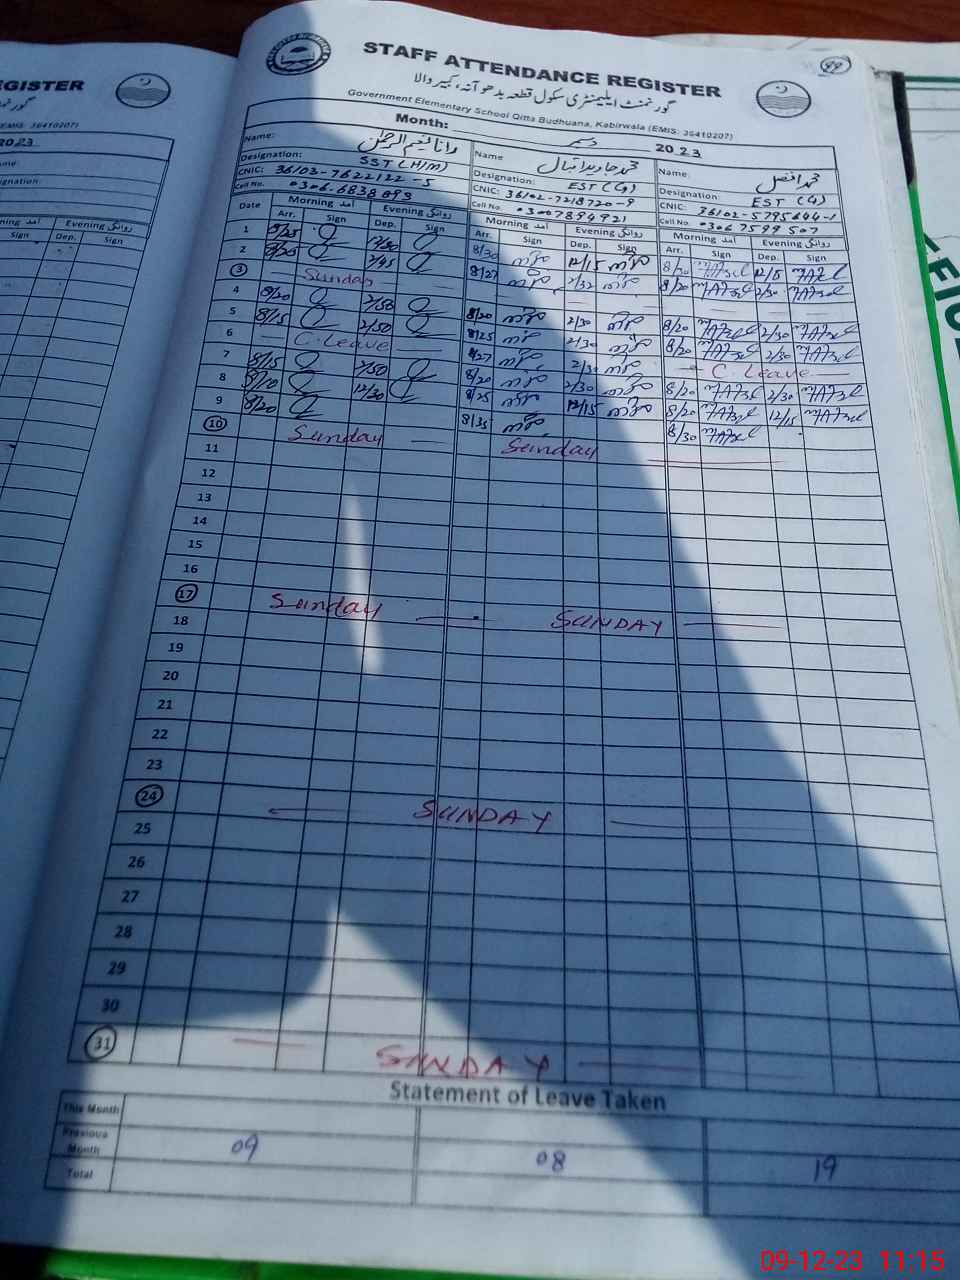 REGISTER
(EMIS: 36410207)
2023
STAFF ATTENDANCE REGISTER
گورنمنٹ ایلیمنٹری سکول قطعہ بدھوآنہ، کبیر والا
Government Elementary School Qitta Budhuana, Kabirwala (EMIS: 36410207)
Month: دسمبر 2023
Name: رانا فہیم الرحمٰن Name محمد جاوید اقبال Name: محمد افضل
Designation: SST (H/M) Designation: EST (G) Designation: EST (G)
CNIC: 36103-7622122-5 CNIC: 36102-7218720-9 CNIC: 36102-5795644-1
Cell No. 0306.6838093 Cell No. 03007894921 Cell No. 03067599507
Date Morning آمد Evening روانگی Morning آمد Evening روانگی Morning آمد Evening روانگی
Arr. Sign Dep. Sign Arr. Sign Dep. Sign Arr. Sign Dep. Sign
1 8/25 12/30 8/30 12/15 8/20 MAfzal 12/15 MAfzal
2 8/20 2/45 8/27 2/32 8/20 MAfzal 2/30 MAfzal
3 Sunday
4 8/20 2/50 8/20 2/30 8/20 MAfzal 2/30 MAfzal
5 8/15 2/50 8/25 2/30 8/20 MAfzal 2/30 MAfzal
6 C. Leave 8/27 2/30 C. Leave
7 8/15 2/50 8/20 2/30 8/20 MAfzal 2/30 MAfzal
8 8/20 12/30 8/25 12/15 8/20 MAfzal 12/15 MAfzal
9 8/20 8/35 8/30 MAfzal
10 Sunday Sunday
11
12
13
14
15
16
17 Sunday SUNDAY
18
19
20
21
22
23
24 SUNDAY
25
26
27
28
29
30
31 SUNDAY
Statement of Leave Taken
This Month
Previous Month 09 08 19
Total
09-12-23 11:15